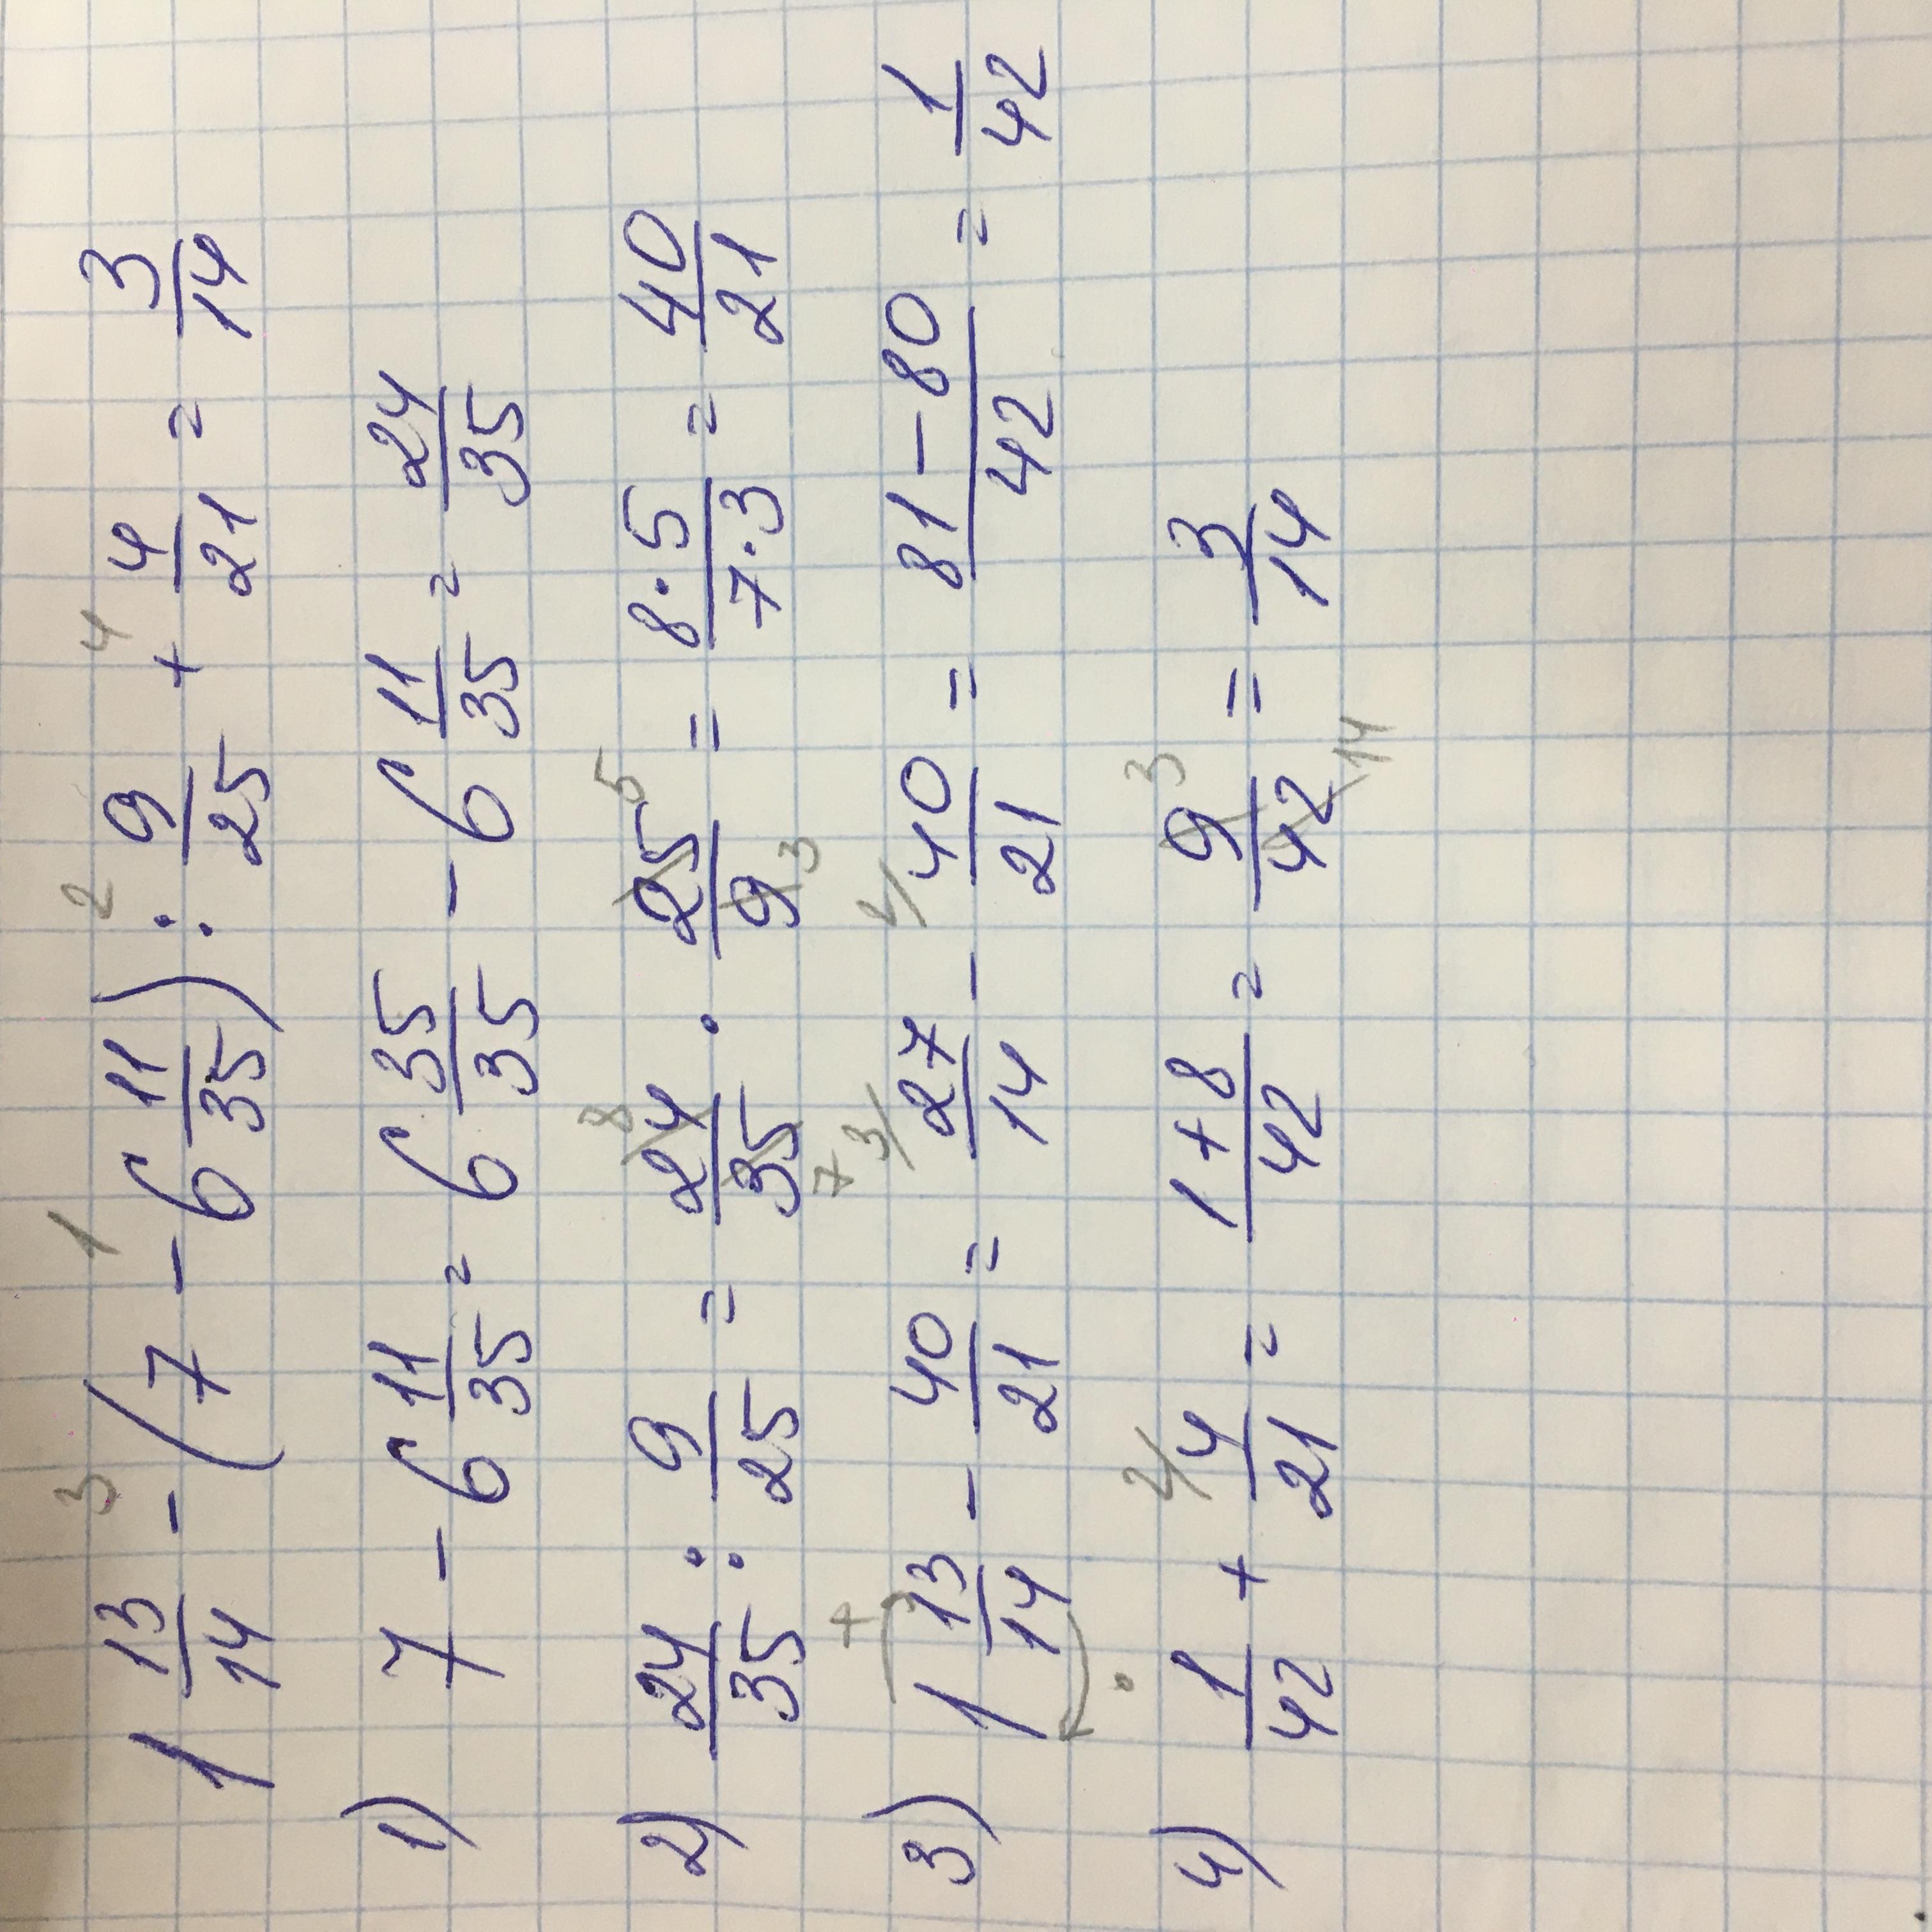 1 13/14 - (7 - 6 11/35) : 9/25 + 4/21 = 3/14
1) 7 - 6 11/35 = 6 35/35 - 6 11/35 = 24/35
2) 24/35 : 9/25 = 24/35 · 25/9 = 8·5/7·3 = 40/21
3) 1 13/14 - 40/21 = 27/14 - 40/21 = 81-80/42 = 1/42
4) 1/42 + 4/21 = 1+8/42 = 9/42 = 3/14